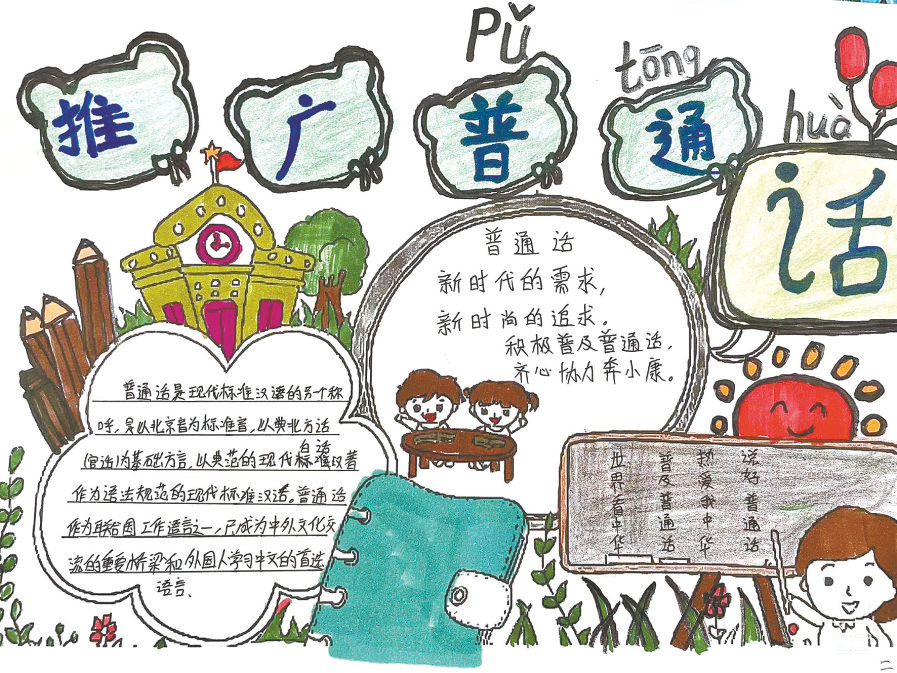 Pǔ tōng huà
推广普通话
普通话
新时代的需求，
新时尚的追求。
积极普及普通话，
齐心协力奔小康。
普通话是现代标准汉语的另个称
呼，是以北京音为标准音，以典北方话
(官话)为基础方言，以典范的现代白话著
作为语法规范的现代标准汉话。普通话
作为联合国工作语言之一，只成为中外文化交
流的重要桥梁和外国人学习中文的首选
语言、
说好普通话
热爱我中华
普及普通话
世界看中华
二